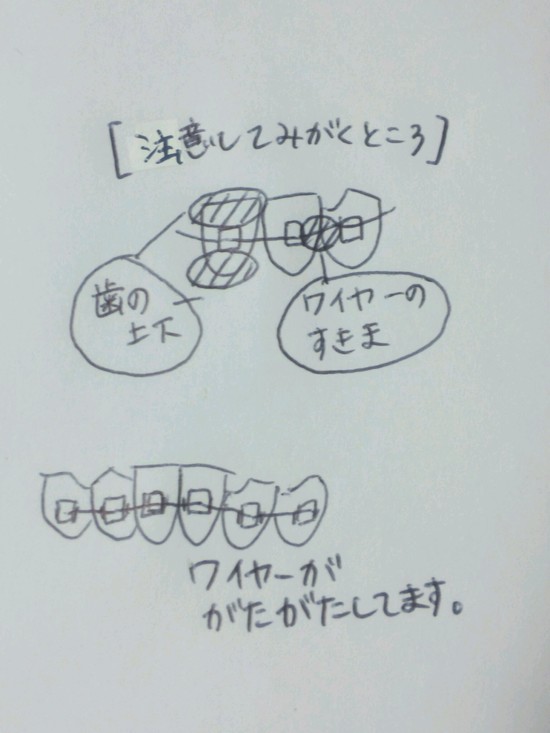 [注意してみがくところ]
歯の
上下
ワイヤーの
すきま
ワイヤーが
がたがたしてます。